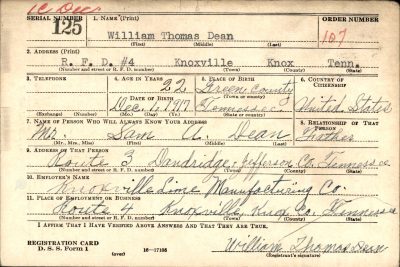 SERIAL NUMBER
1. NAME (Print)
ORDER NUMBER
125
William Thomas Dean
107
(First) (Middle) (Last)
2. ADDRESS (Print)
R. F. D. #4 Knoxville Knox Tenn.
(Number and street or R. F. D. number) (Town) (County) (State)
3. TELEPHONE
4. AGE IN YEARS
5. PLACE OF BIRTH
6. COUNTRY OF CITIZENSHIP
22
Green County
DATE OF BIRTH
(Town or county)
Dec. 1, 1917
Tennessee
United States
(Exchange) (Number)
(Mo.) (Day) (Yr.)
(State or country)
7. NAME OF PERSON WHO WILL ALWAYS KNOW YOUR ADDRESS
8. RELATIONSHIP OF THAT PERSON
Mr. Sam A. Dean
Father
(Mr., Mrs., Miss) (First) (Middle) (Last)
9. ADDRESS OF THAT PERSON
Route 3 Dandridge, Jefferson Co. Tennessee
(Number and street or R. F. D. number) (Town) (County) (State)
10. EMPLOYER'S NAME
Knoxville Lime Manufacturing Co.
11. PLACE OF EMPLOYMENT OR BUSINESS
Route 4 Knoxville, Knox Co. Tennessee
(Number and street or R. F. D. number) (Town) (County) (State)
I AFFIRM THAT I HAVE VERIFIED ABOVE ANSWERS AND THAT THEY ARE TRUE.
REGISTRATION CARD
D. S. S. Form 1
(over)
16—17105
William Thomas Dean
(Registrant's signature)